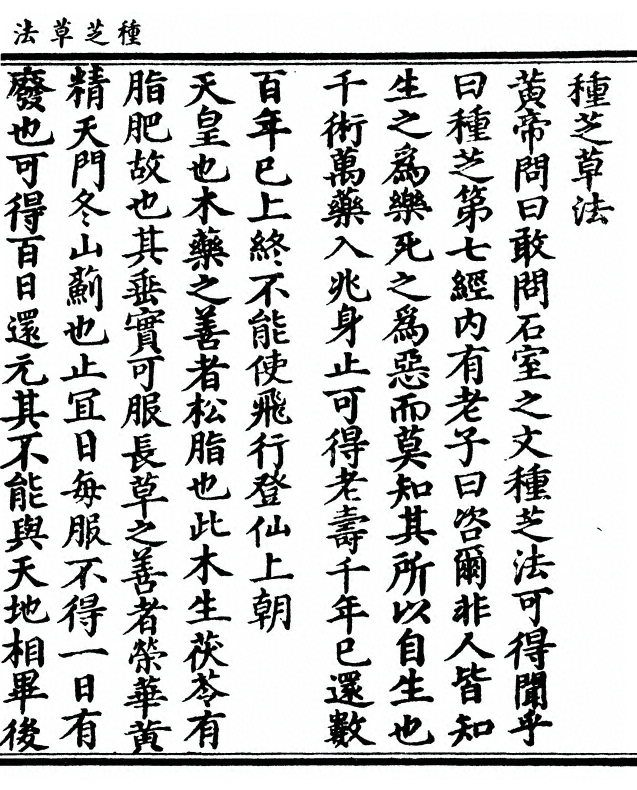 種芝草法
種芝草法
黄帝問曰敢問石室之文種芝法可得聞乎
曰種芝第七經内有老子曰咨爾非人皆知
生之爲樂死之爲惡而莫知其所以自生也
千術萬藥入兆身止可得老壽千年已還數
百年已上終不能使飛行登仙上朝
天皇也木藥之善者松脂也此木生茯苓有
脂肥故也其垂實可服長草之善者榮華黄
精天門冬山薊也止冝日每服不得一日有
廢也可得百日還元其不能與天地相畢後